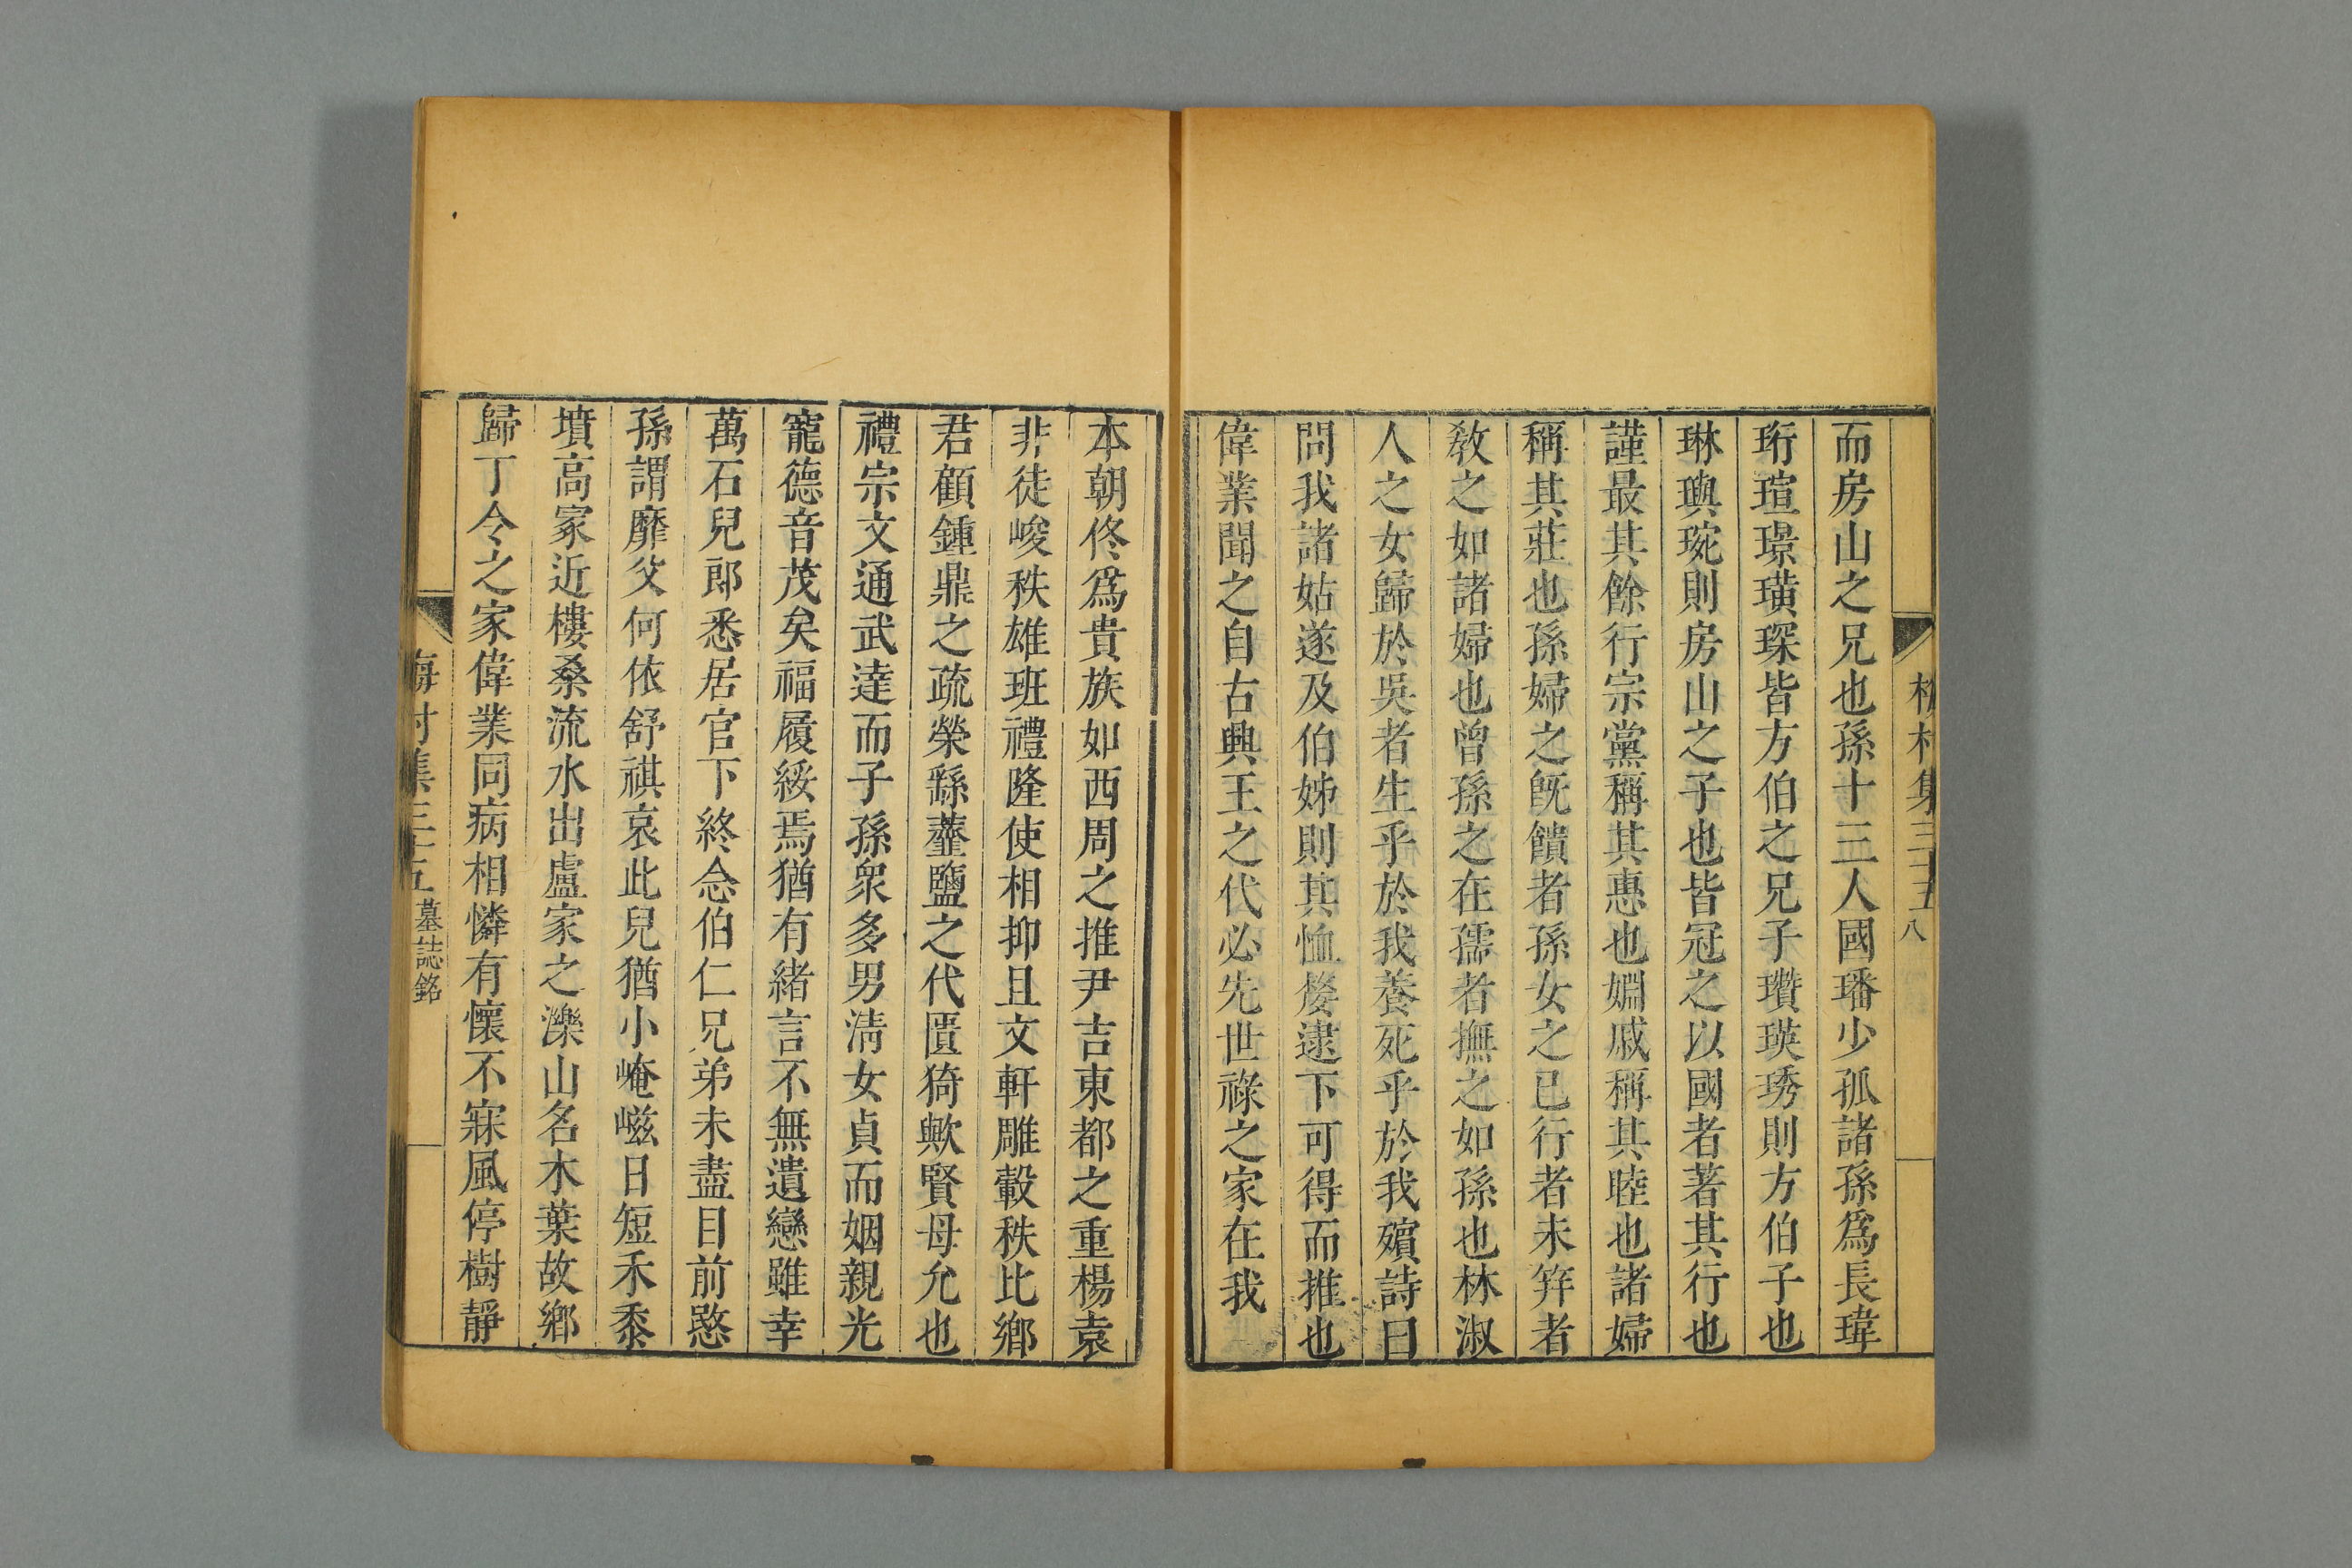 梅村集三十五 八
而房山之兄也孫十三人國璠少孤諸孫爲長瑋
珩瑄璟璜琛皆方伯之兄子瓚瑛琇則方伯子也
琳璵琬則房山之子也皆冠之以國者著其行也
謹最其餘行宗黨稱其惠也婣戚稱其睦也諸婦
稱其莊也孫婦之旣饋者孫女之已行者未笄者
敎之如諸婦也曾孫之在孺者撫之如孫也林淑
人之女歸於吳者生乎於我養死乎於我殯詩曰
問我諸姑遂及伯姊則其恤嫠逮下可得而推也
偉業聞之自古興王之代必先世祿之家在我
本朝佟爲貴族如西周之推尹吉東都之重楊袁
非徒峻秩雄班禮隆使相抑且文軒雕轂秩比鄉
君顧鍾鼎之疏榮繇虀鹽之代匱猗歟賢母允也
禮宗文通武達而子孫衆多男淸女貞而姻親光
寵德音茂矣福履綏焉猶有緒言不無遺戀雖幸
萬石兒郎悉居官下終念伯仁兄弟未盡目前愍
孫謂靡父何依舒祺哀此兒猶小崦嵫日短禾黍
墳高冢近樓桑流水出盧家之濼山名木葉故鄉
歸丁令之家偉業同病相憐有懷不寐風停樹靜
梅村集三十五 墓誌銘